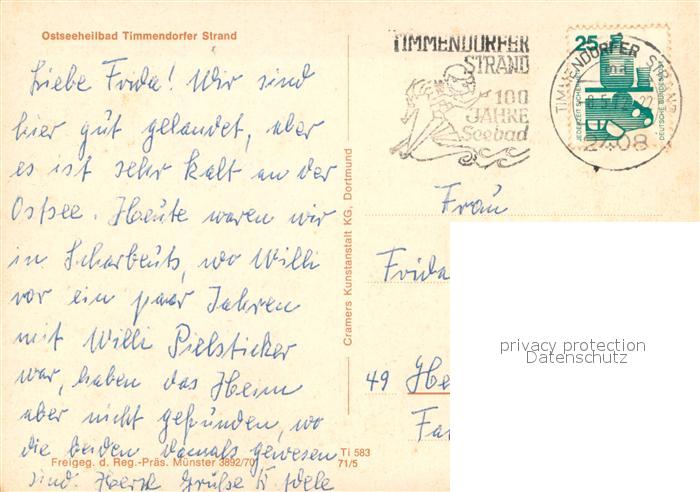 Ostseeheilbad Timmendorfer Strand
Liebe Frida! Wir sind
hier gut gelandet, aber
es ist sehr kalt an der
Ostsee. Heute waren wir
in Scharbeutz, wo Willi
vor ein paar Jahren
mit Willi Pielsticker
war, haben das Heim
aber nicht gefunden, wo
die beiden damals gewesen
sind. Herzl. Grüße
Freigeg. d. Reg.-Präs. Münster 3892/70
Ti 583
71/5
Cramers Kunstanstalt KG, Dortmund
TIMMENDORFER
STRAND
100
JAHRE
Seebad
TIMMENDORFER STRAND
2408
25
JEDERZEIT SICHERHEIT
DEUTSCHE BUNDESPOST
Frau
Frida
49 He
privacy protection
Datenschutz